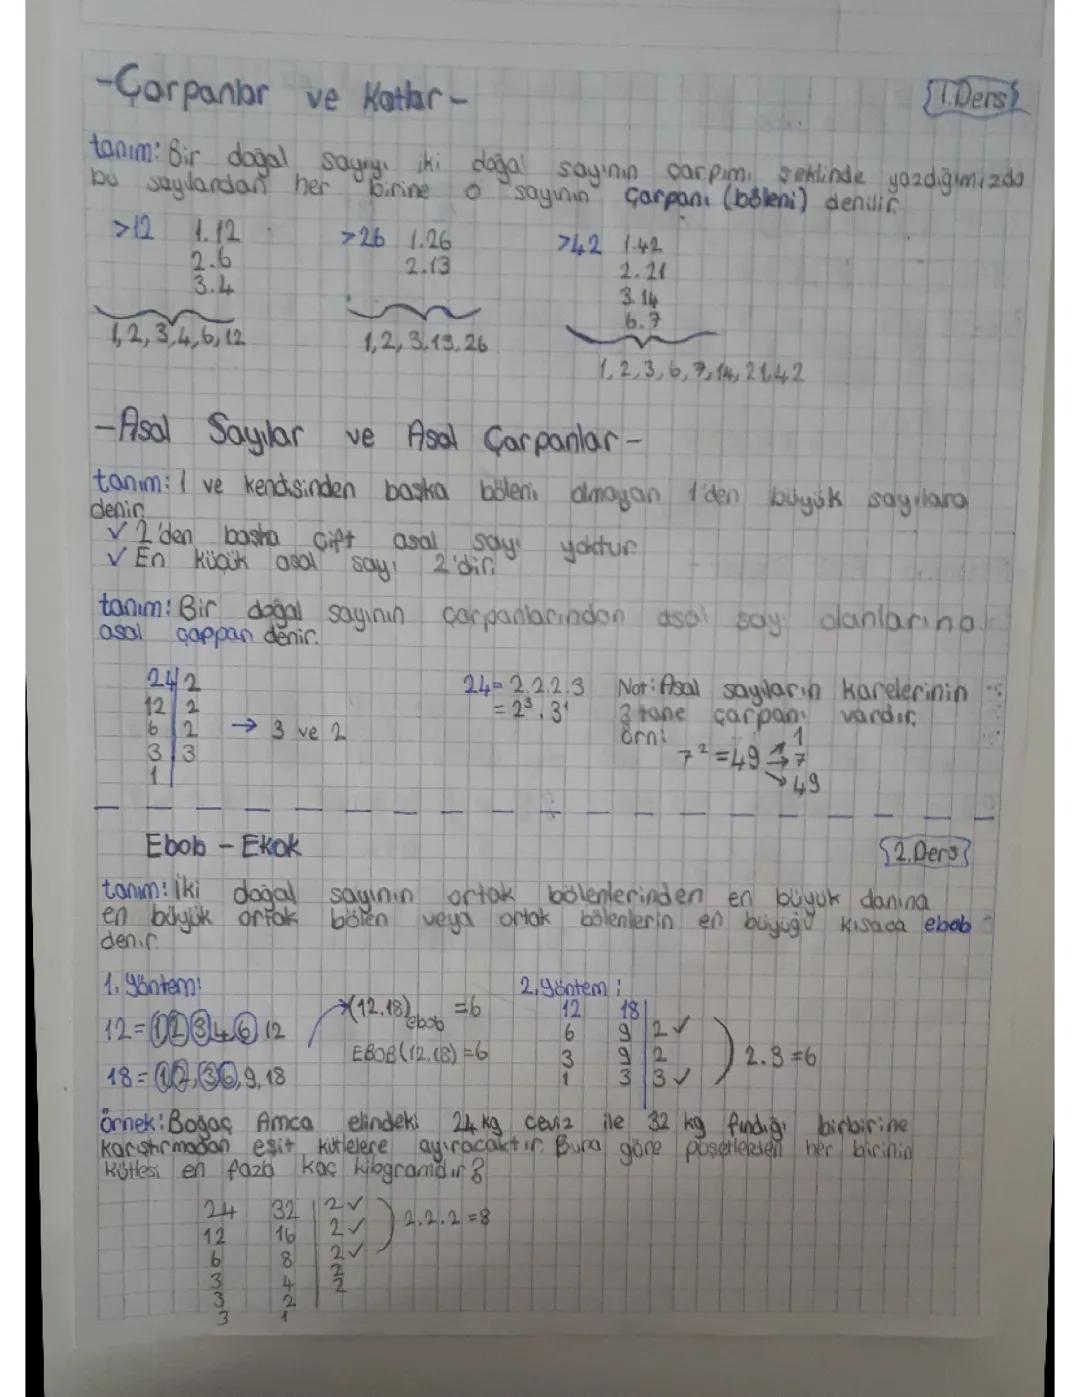 -Çarpanlar ve Katlar-
1.Ders
tanım: Bir doğal sayıyı iki doğal sayının çarpımı şeklinde yazdığımızda
bu sayılardan her birine o sayının çarpanı (böleni) denilir.
>12 1.12 >26 1.26 >42 1.42
2.6 2.13 2.21
3.4 3.14
6.7
1,2,3,4,6,12 1,2,3,13,26
1,2,3,6,7,14,21,42
-Asal Sayılar ve Asal Çarpanlar-
tanım: 1 ve kendisinden başka böleni olmayan 1'den büyük sayılara
denir.
✓ 2'den başka çift asal sayı yoktur.
✓ En küçük asal sayı 2'dir.
tanım: Bir doğal sayının çarpanlarından asal sayı olanlarına
asal çappan denir.
24 2 24= 2.2.2.3 Not: Asal sayıların karelerinin
12 2 = 2³.3¹ 3 tane çarpanı vardır.
6 2 → 3 ve 2 örn: 1
3 3 7²=49 → 7
1 49
Ebob - Ekok
2.Ders
tanım: İki doğal sayının ortak bölenlerinden en büyük danına
en büyük ortak bölen veya ortak bölenlerin en büyüğü kısaca ebob
denir.
1. yöntem: 2. yöntem:
(12,18)ebob =6 12 18
12= 1 2 3 4 6 12 6 9 2✓
EBOB(12,18)=6 3 9 2 2.3=6
18= 1 2, 3 6, 9, 18 1 3 3✓
örnek: Boğaç Amca elindeki 24 kg ceviz ile 32 kg fındığı birbirine
karıştırmadan eşit kütlelere ayıracaktır. Buna göre poşetlerden her birinin
kütlesi en fazla kaç kilogramdır?
24 32 2✓
12 16 2✓ 2.2.2=8
6 8 2✓
3 4 2
3 2 2
3 1